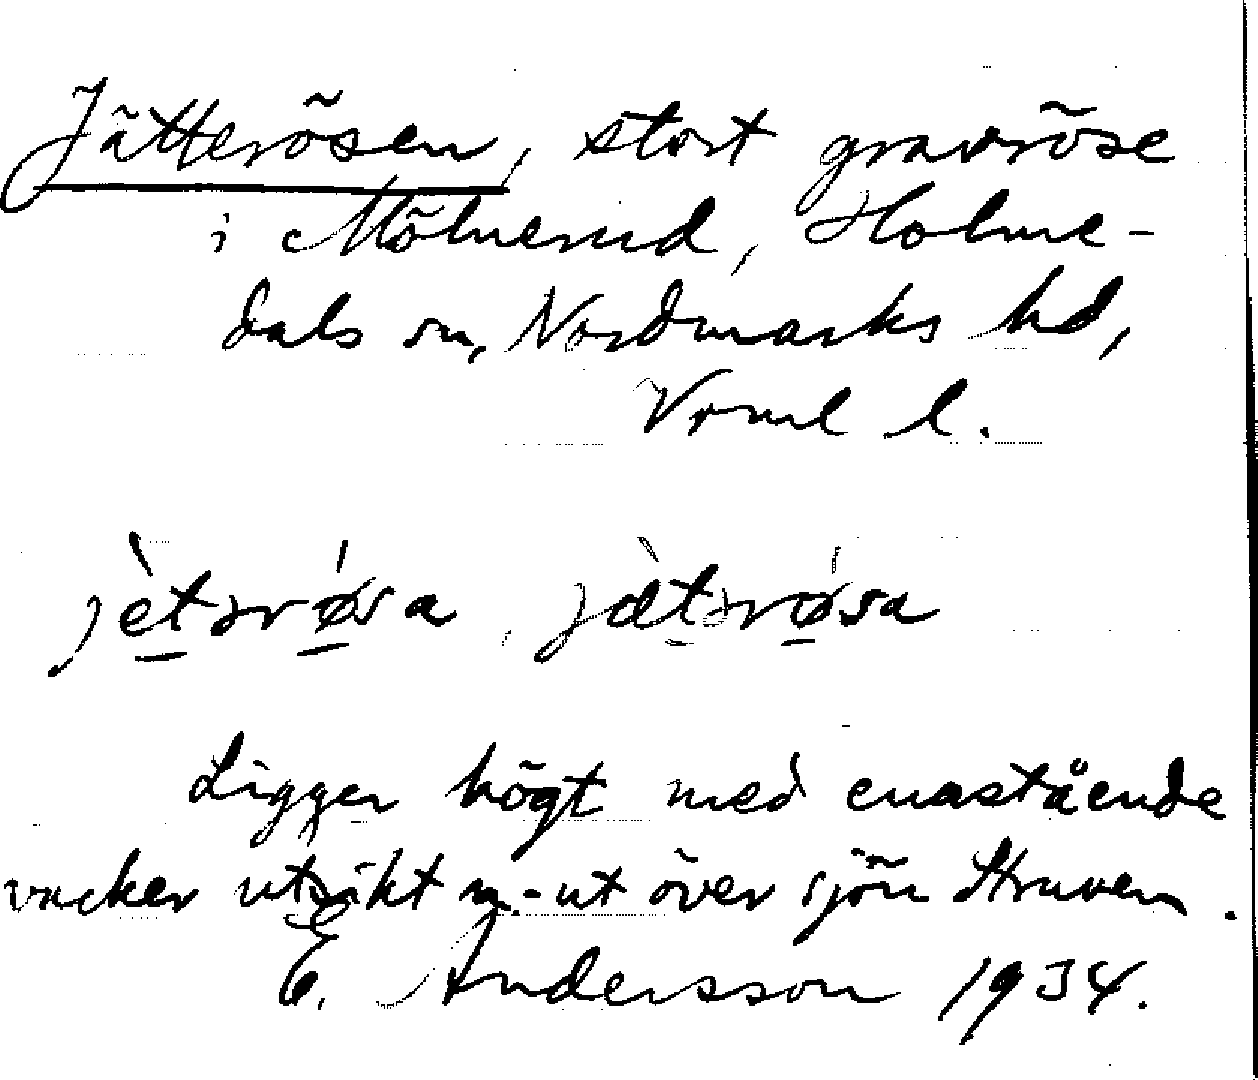 Jätterösen, stort gravröse
i Mölnerud, Holme-
dals sn, Nordmarks hd,
Vrml l.
jètərǿsa, jæ̀tərǿsa
Ligger högt med enastående
vacker utsikt n.-ut över sjön Struven.
E. Andersson 1934.